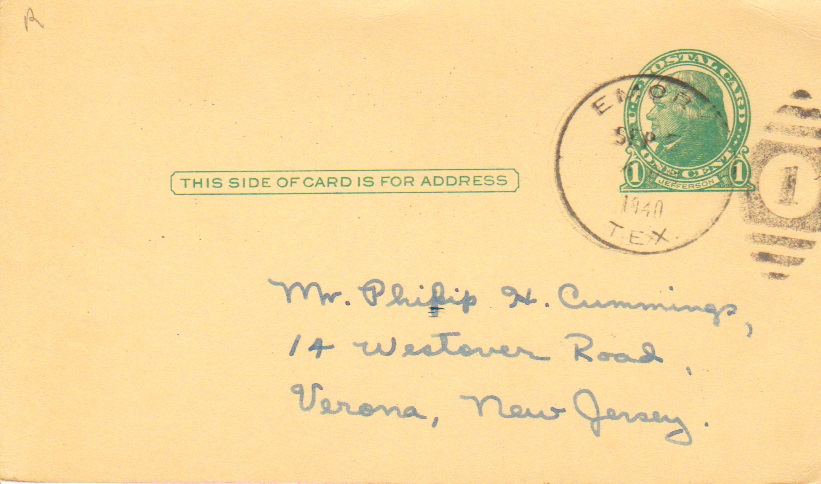 R
U.S. POSTAL CARD
EMORY
SEP
ONE CENT
1 JEFFERSON 1
1
THIS SIDE OF CARD IS FOR ADDRESS
1940
TEX.
Mr. Philip H. Cummings,
14 Westover Road,
Verona, New Jersey.